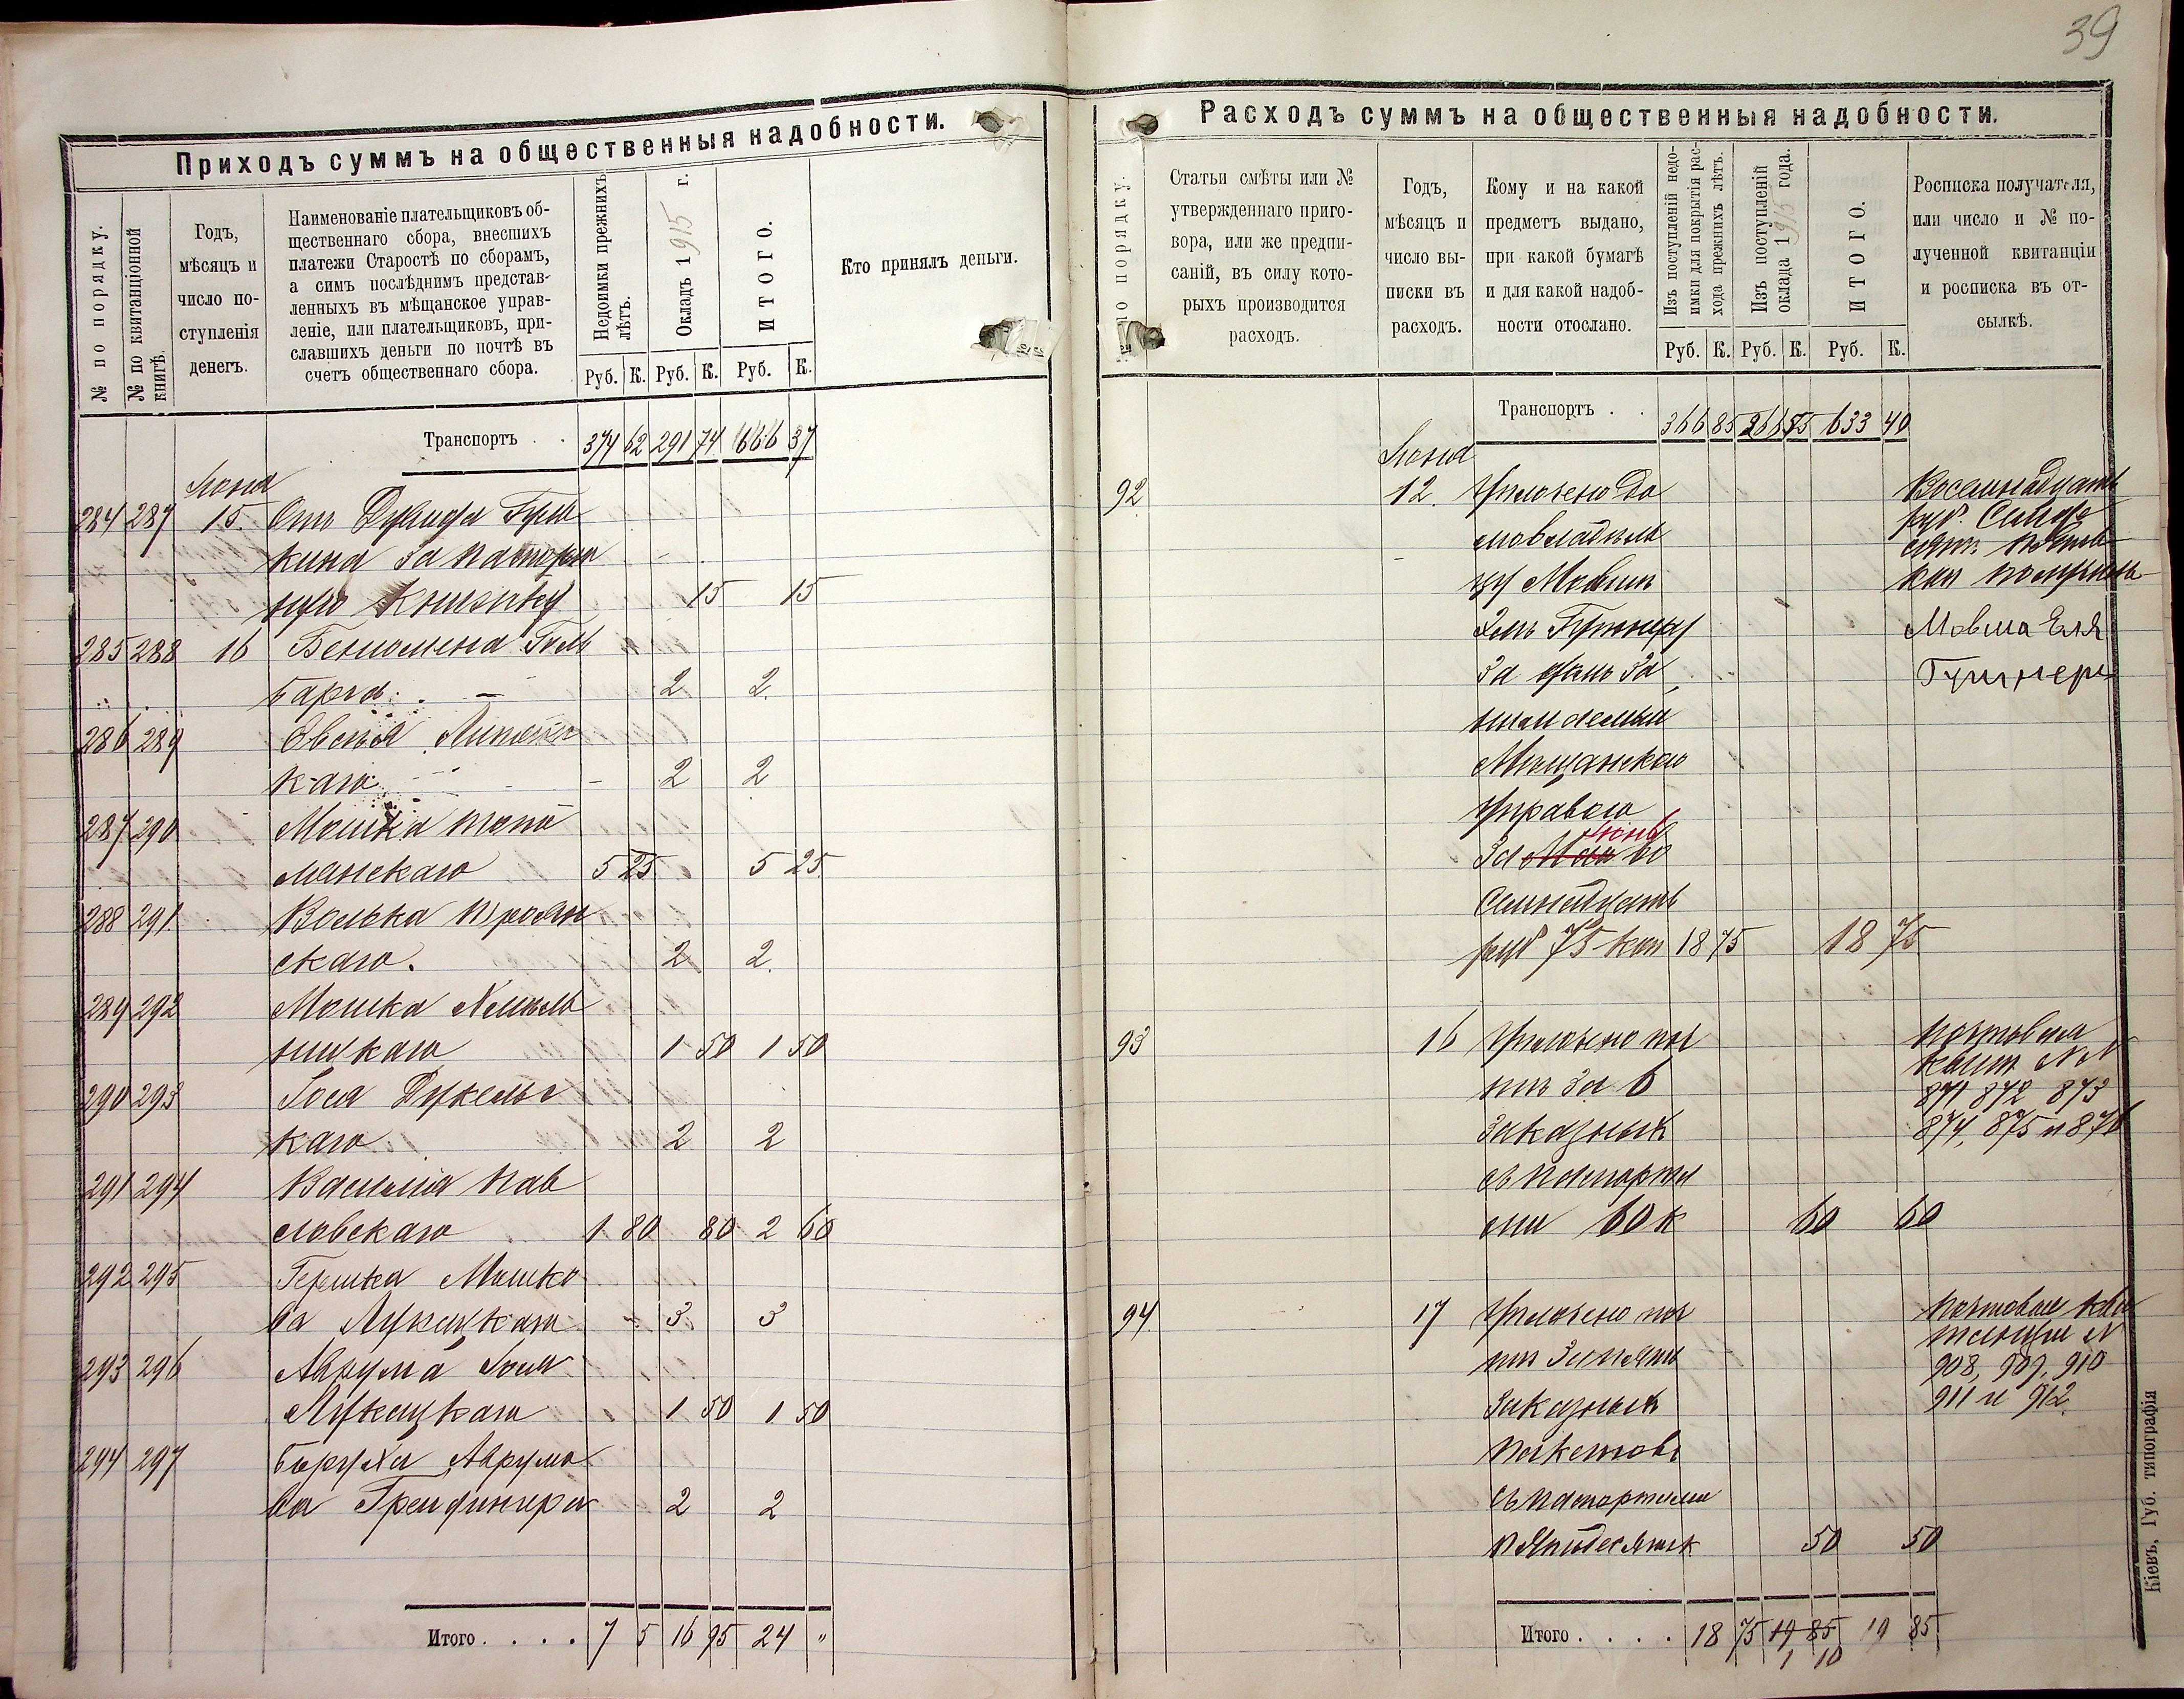 39
Приходъ суммъ на общественныя надобности.
№ по порядку.
№ по квитанціонной книгѣ.
Годъ,
мѣсяцъ и
число по-
ступленія
денегъ.
Наименованіе плательщиковъ об-
щественнаго сбора, внесшихъ
платежи Старостѣ по сборамъ,
а симъ послѣднимъ представ-
ленныхъ въ мѣщанское управ-
леніе, или плательщиковъ, при-
славшихъ деньги по почтѣ въ
счетъ общественнаго сбора.
Недоимки прежнихъ
лѣтъ.
Окладъ 1915 г.
ИТОГО.
Кто принялъ деньги.
Руб. К. Руб. К. Руб. К.
Транспортъ . . 374 62 291 74 666 37
Іюня
284 287 15. Отъ Дувида
кина за паспорт
ную книжку 15 15
285 288 16 БенюменаГоль
барга. 2 2.
286 289 Овсѣя
каго 2 2
287 290 Мошка Топо
манскаго 5 25 5 25
288 291 Волька Проян
скаго. 2 2.
289 292 Мошка Хмѣль
ницкаго 1 50 1 50
290 293 Іося Дукельс
каго 2 2
291 294 Василія Пав
ловскаго 1 80 80 2 60
292 295 Гершка Мошко
ва Лукацкаго 3 3
293 296 Аврума Іося
Лукацкаго 1 50 1 50
294 297 Боруха Аврумо
ва Грейдингера 2 2
Итого . . . . 7 5 16 95 24 "
Расходъ суммъ на общественныя надобности.
№ по порядку.
Статьи смѣты или №
утвержденнаго приго-
вора, или же предпи-
саній, въ силу кото-
рыхъ производится
расходъ.
Годъ,
мѣсяцъ и
число вы-
писки въ
расходъ.
Кому и на какой
предметъ выдано,
при какой бумагѣ
и для какой надоб-
ности отослано.
Изъ поступленій недо-
имки для покрытія рас-
хода прежнихъ лѣтъ.
Изъ поступленій
оклада 1915 года.
ИТОГО.
Росписка получателя,
или число и № по-
лученной квитанціи
и росписка въ от-
сылкѣ.
Руб. К. Руб. К. Руб. К.
Транспортъ . . 366 85 266 55 633 40
Іюня
92 12. Уплочено до
мовладѣль
цу Мовши
Элѣ
за
Мѣщанскою
Управою
Іюнь
за Май во
семнадцать
руб 75 коп 18 75 18 75
Восемнадцать
руб. Семьде
сятъ пять
коп получилъ
Мовша Еля
93 16 Уплочено поч
тѣ за 6
заказныхъ
съ паспорта
ми 60 к 60 60
Почтовыя
квит. №№
871 872 873
874, 875 и 876
94. 17 Уплочено поч
тѣ за пять
заказныхъ
пакетовъ
съ паспортами
пятьдесятъ к 50 50
Почтовыя кви
танціи №
908, 909, 910
911 и 912
Итого . . . . 18 75 19 85 19 85
1 10
Кіевъ, Губ. типографія